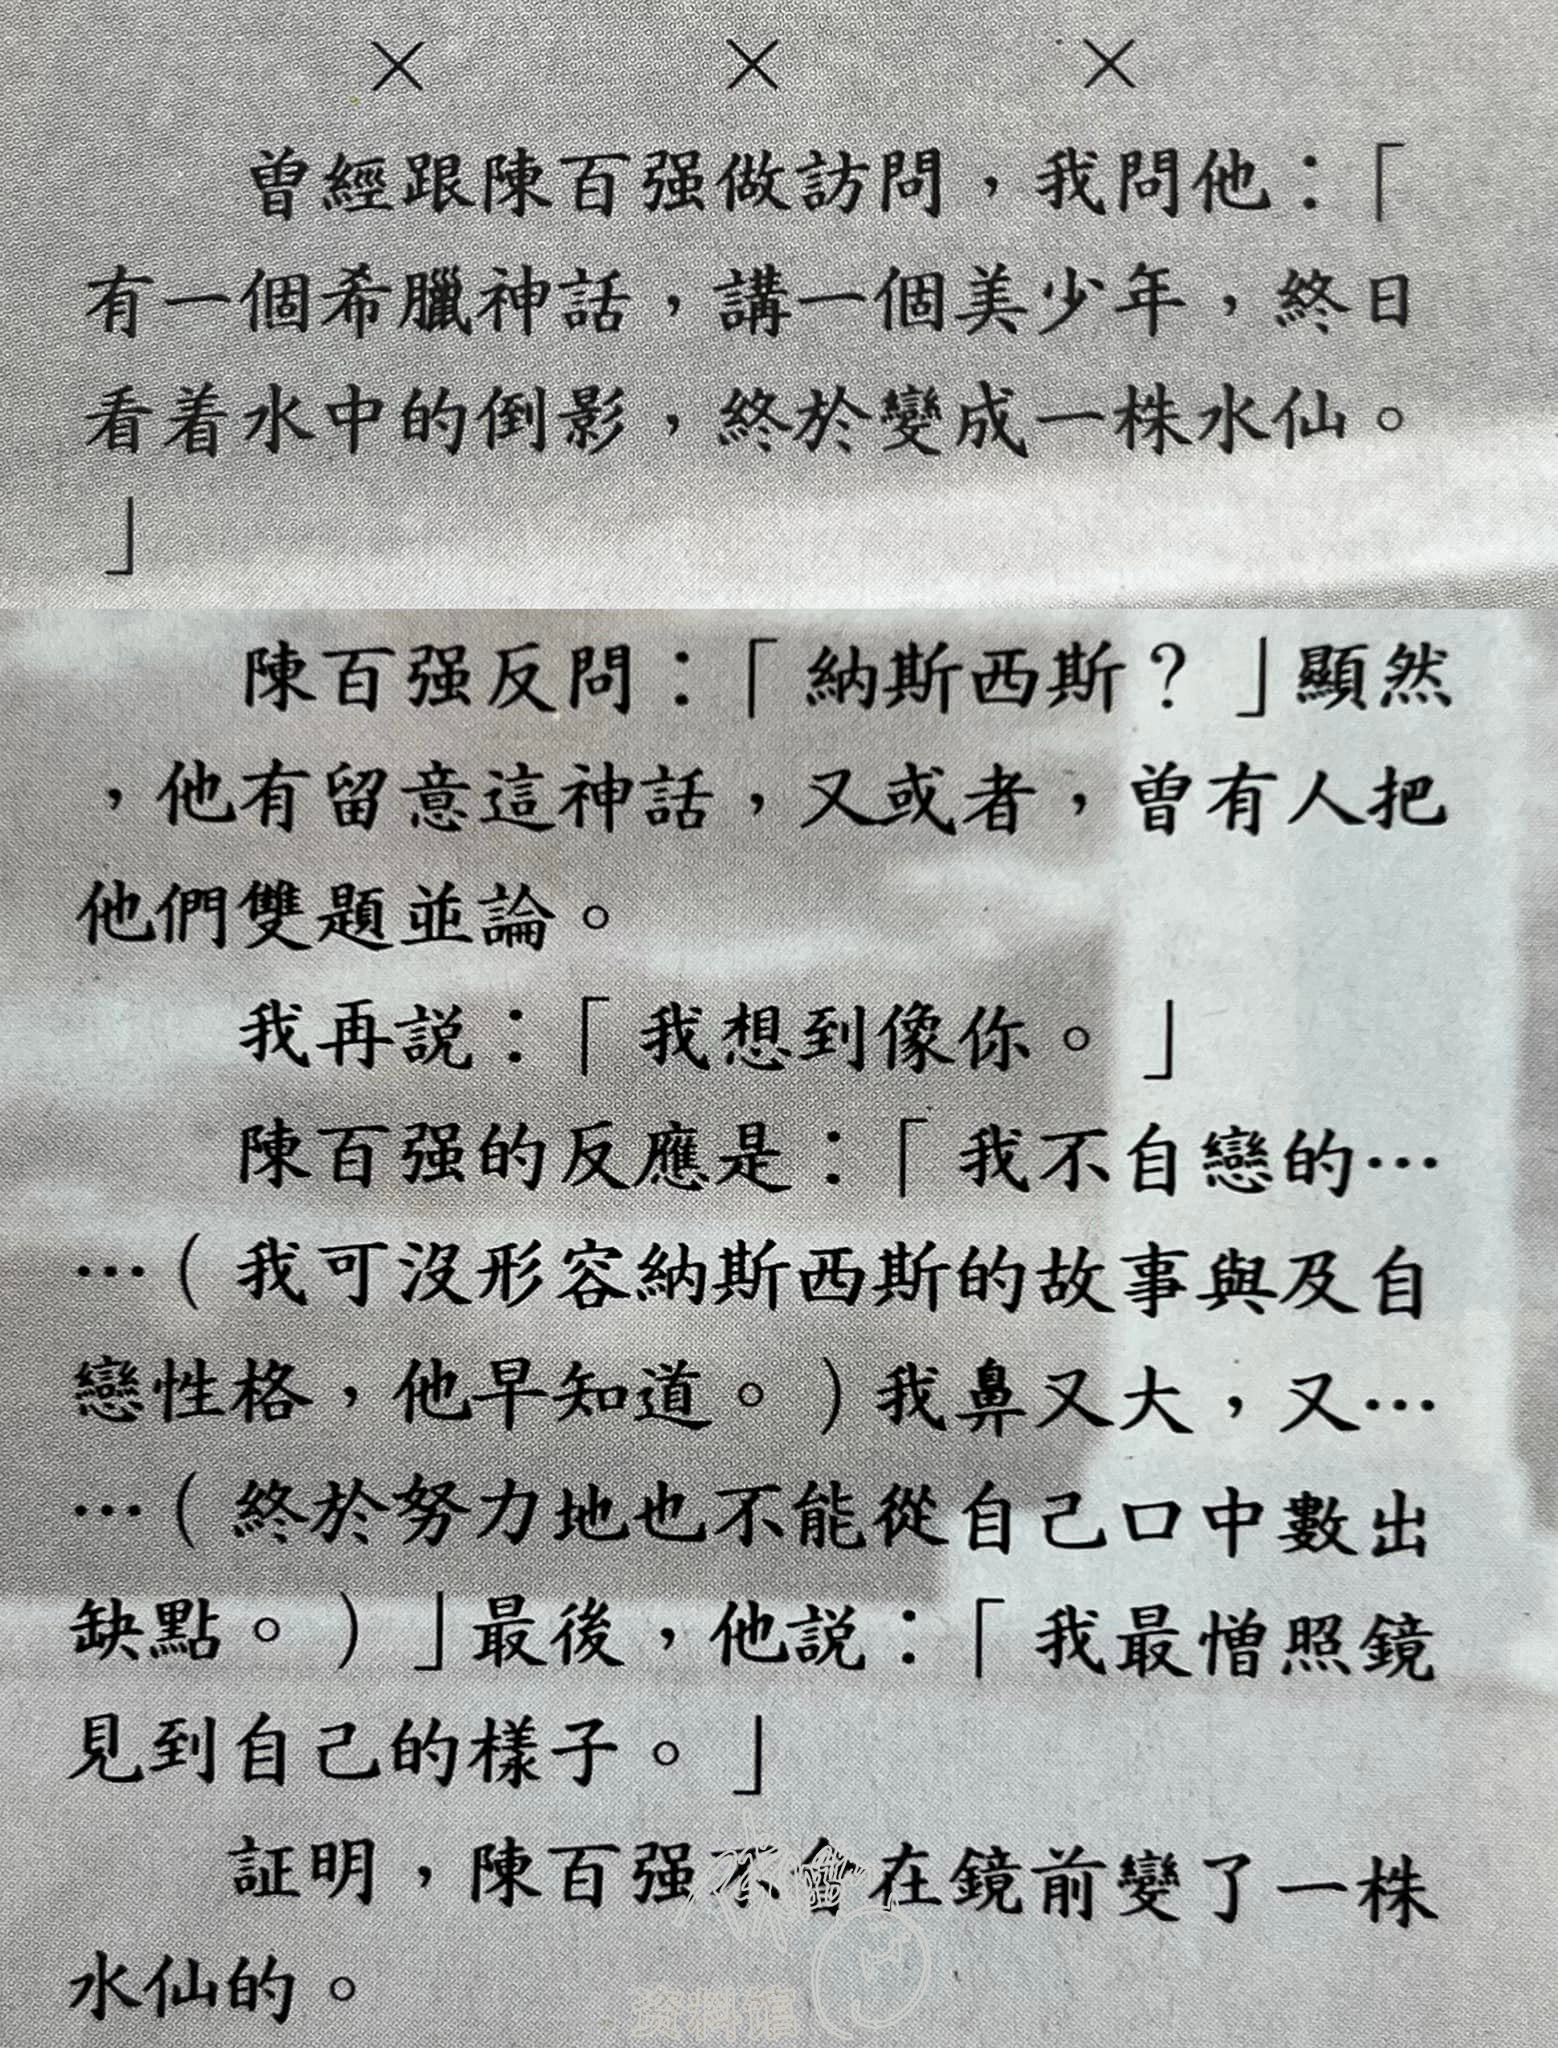 × × ×
曾經跟陳百强做訪問，我問他：「
有一個希臘神話，講一個美少年，終日
看着水中的倒影，終於變成一株水仙。
」
陳百强反問：「納斯西斯？」顯然
，他有留意這神話，又或者，曾有人把
他們雙題並論。
我再説：「我想到像你。」
陳百强的反應是：「我不自戀的…
…（我可沒形容納斯西斯的故事與及自
戀性格，他早知道。）我鼻又大，又…
…（終於努力地也不能從自己口中數出
缺點。）」最後，他説：「我最憎照鏡
見到自己的樣子。」
証明，陳百强不會在鏡前變了一株
水仙的。
资料馆